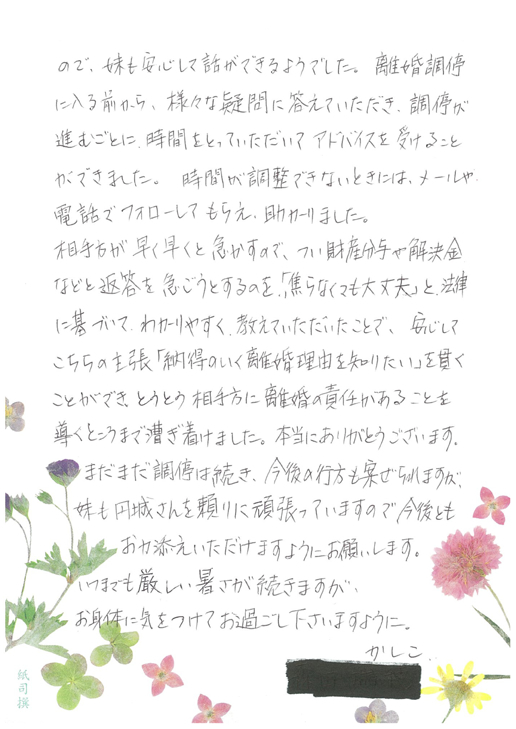 ので、妹も安心して話ができるようでした。離婚調停
に入る前から、様々な疑問に答えていただき、調停が
進むごとに、時間をとっていただいてアドバイスを受けること
ができました。時間が調整できないときには、メールや
電話でフォローしてもらえ、助かりました。
相手方が早く早くと急かすので、つい財産分与や解決金
などと返答を急ごうとするのを、「焦らなくても大丈夫」と、法律
に基づいて、わかりやすく、教えていただいたことで、安心して
こちらの主張「納得のいく離婚理由を知りたい」を貫く
ことができ、とうとう相手方に離婚の責任があることを
導くところまで漕ぎ着けました。本当にありがとうございます。
まだまだ調停は続き、今後の行方も案ぜられますが、
妹も円城さんを頼りに頑張っていますので今後とも
お力添えいただけますようにお願いします。
いつまでも厳しい暑さが続きますが、
お身体に気をつけてお過ごし下さいますように。
かしこ
紙司撰